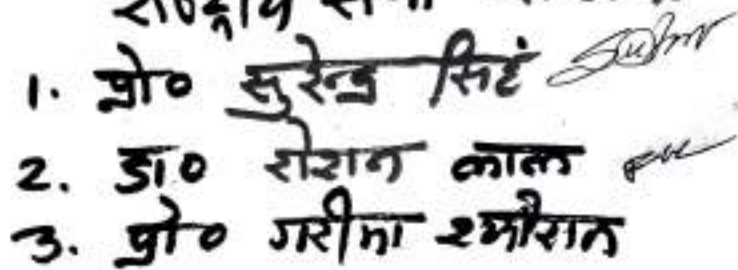 राष्ट्रीय सेवा
1. प्रो० सुरेन्द्र सिहं
2. डा० रोशन लाल
3. प्रो० गरीमा श्योरान